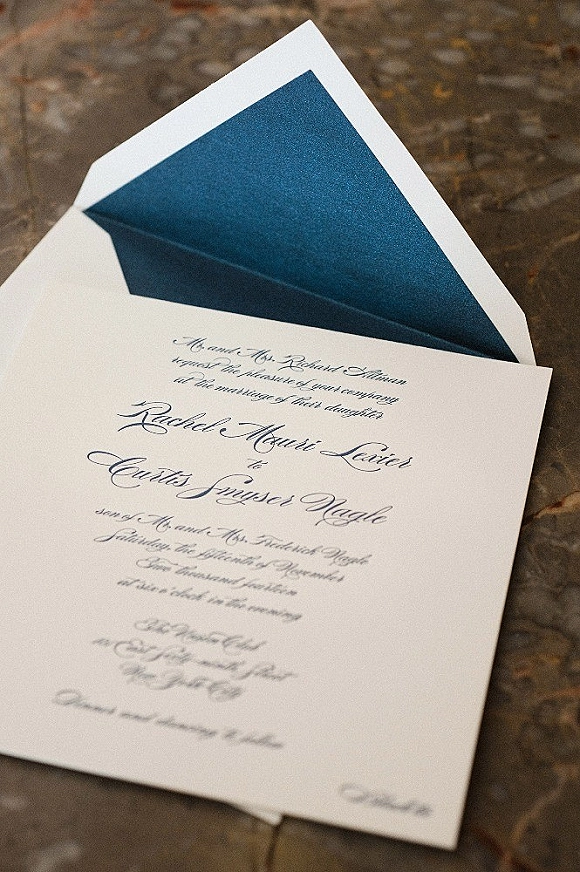 Mr. and Mrs. Richard Altman
request the pleasure of your company
at the marriage of their daughter
Rachel Mauri Lexier
to
Curtis Smyser Nagle
son of Mr. and Mrs. Frederick Nagle
Saturday, the fifteenth of November
Two thousand fourteen
at six o'clock in the evening
The Union Club
East Sixty-ninth Street
New York City
Dinner and dancing to follow